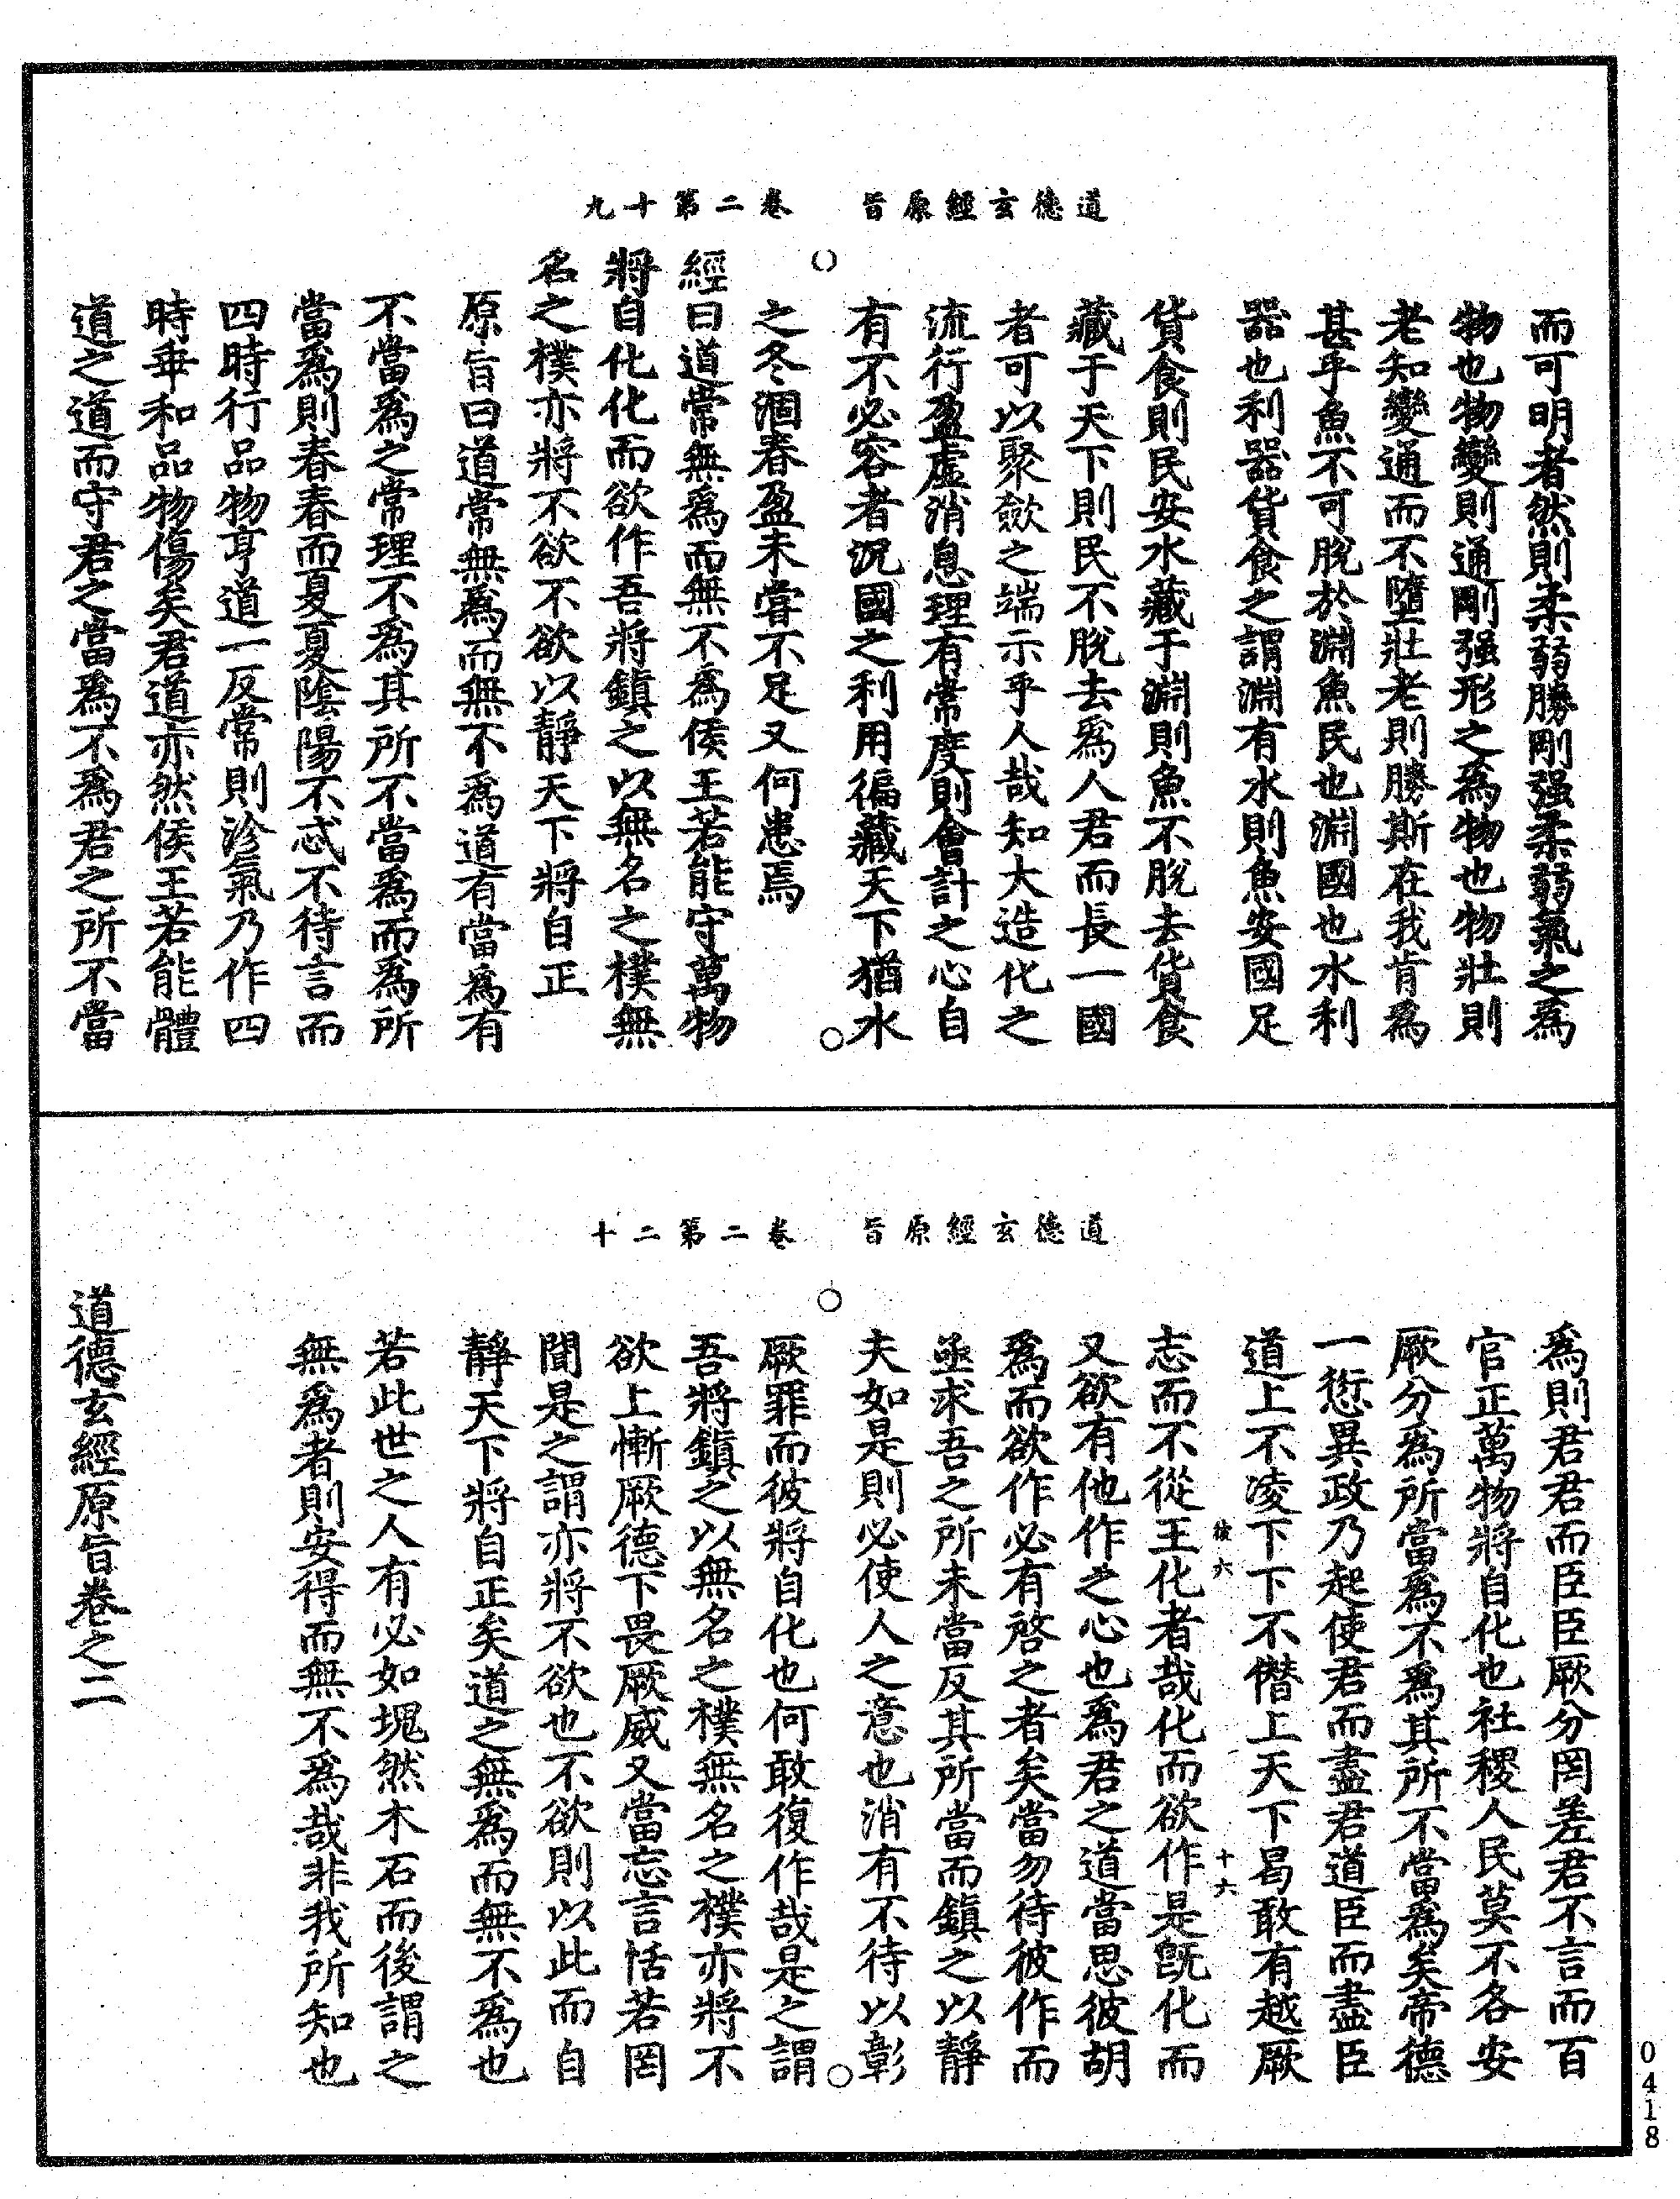 道德玄經原旨　卷二第十九
而可明者然則柔弱勝剛强柔弱氣之爲
物也物變則通剛强形之爲物也物壯則
老知變通而不墮壯老則勝斯在我肯爲
甚乎魚不可脫於淵魚民也淵國也水利
器也利器貨食之謂淵有水則魚安國足
貨食則民安水藏于淵則魚不脫去貨食
藏于天下則民不脫去爲人君而長一國
者可以聚斂之端示乎人哉知大造化之
流行盈虛消息理有常度則會計之心自
有不必容者況國之利用徧藏天下猶水
之冬涸春盈未嘗不足又何患焉
經曰道常無爲而無不爲侯王若能守萬物
將自化化而欲作吾將鎭之以無名之樸無
名之樸亦將不欲不欲以靜天下將自正
原旨曰道常無爲而無不爲道有當爲有
不當爲之常理不爲其所不當爲而爲所
當爲則春春而夏夏陰陽不忒不待言而
四時行品物亨道一反常則沴氣乃作四
時乖和品物傷矣君道亦然侯王若能體
道之道而守君之當爲不爲君之所不當
道德玄經原旨　卷二第二十
爲則君君而臣臣厥分罔差君不言而百
官正萬物將自化也社稷人民莫不各安
厥分爲所當爲不爲其所不當爲矣帝德
一愆異政乃起使君而盡君道臣而盡臣
道上不凌下下不僭上天下曷敢有越厥
志而不從王化者哉化而欲作是旣化而
又欲有他作之心也爲君之道當思彼胡
爲而欲作必有啓之者矣當勿待彼作而
亟求吾之所未當反其所當而鎭之以靜
夫如是則必使人之意也消有不待以彰
厥罪而彼將自化也何敢復作哉是之謂
吾將鎭之以無名之樸無名之樸亦將不
欲上慚厥德下畏厥威又當忘言恬若罔
聞是之謂亦將不欲也不欲則以此而自
靜天下將自正矣道之無爲而無不爲也
若此世之人有必如塊然木石而後謂之
無爲者則安得而無不爲哉非我所知也
道德玄經原旨卷之二
十六
0418